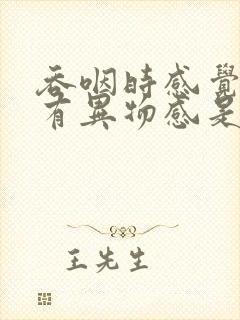 吞咽時感覺
有異物感是
王先生